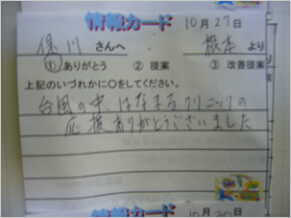 情報カード 10月27日
さんへ 根本 より
① ありがとう ② 提案 ③ 改善提案
上記のいづれかに○をしてください。
台風の中 はなまるクリニックの
応援ありがとうございました
情報カード
10月20日